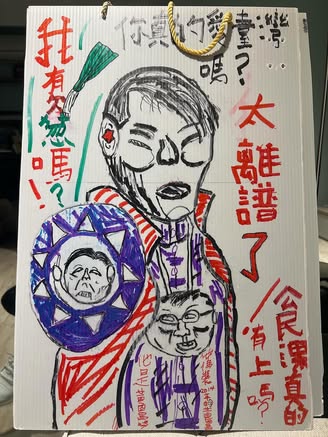 你真的愛臺灣
嗎？
我有欠葱嗎？！
太離譜了
公民課真的
有上嗎？